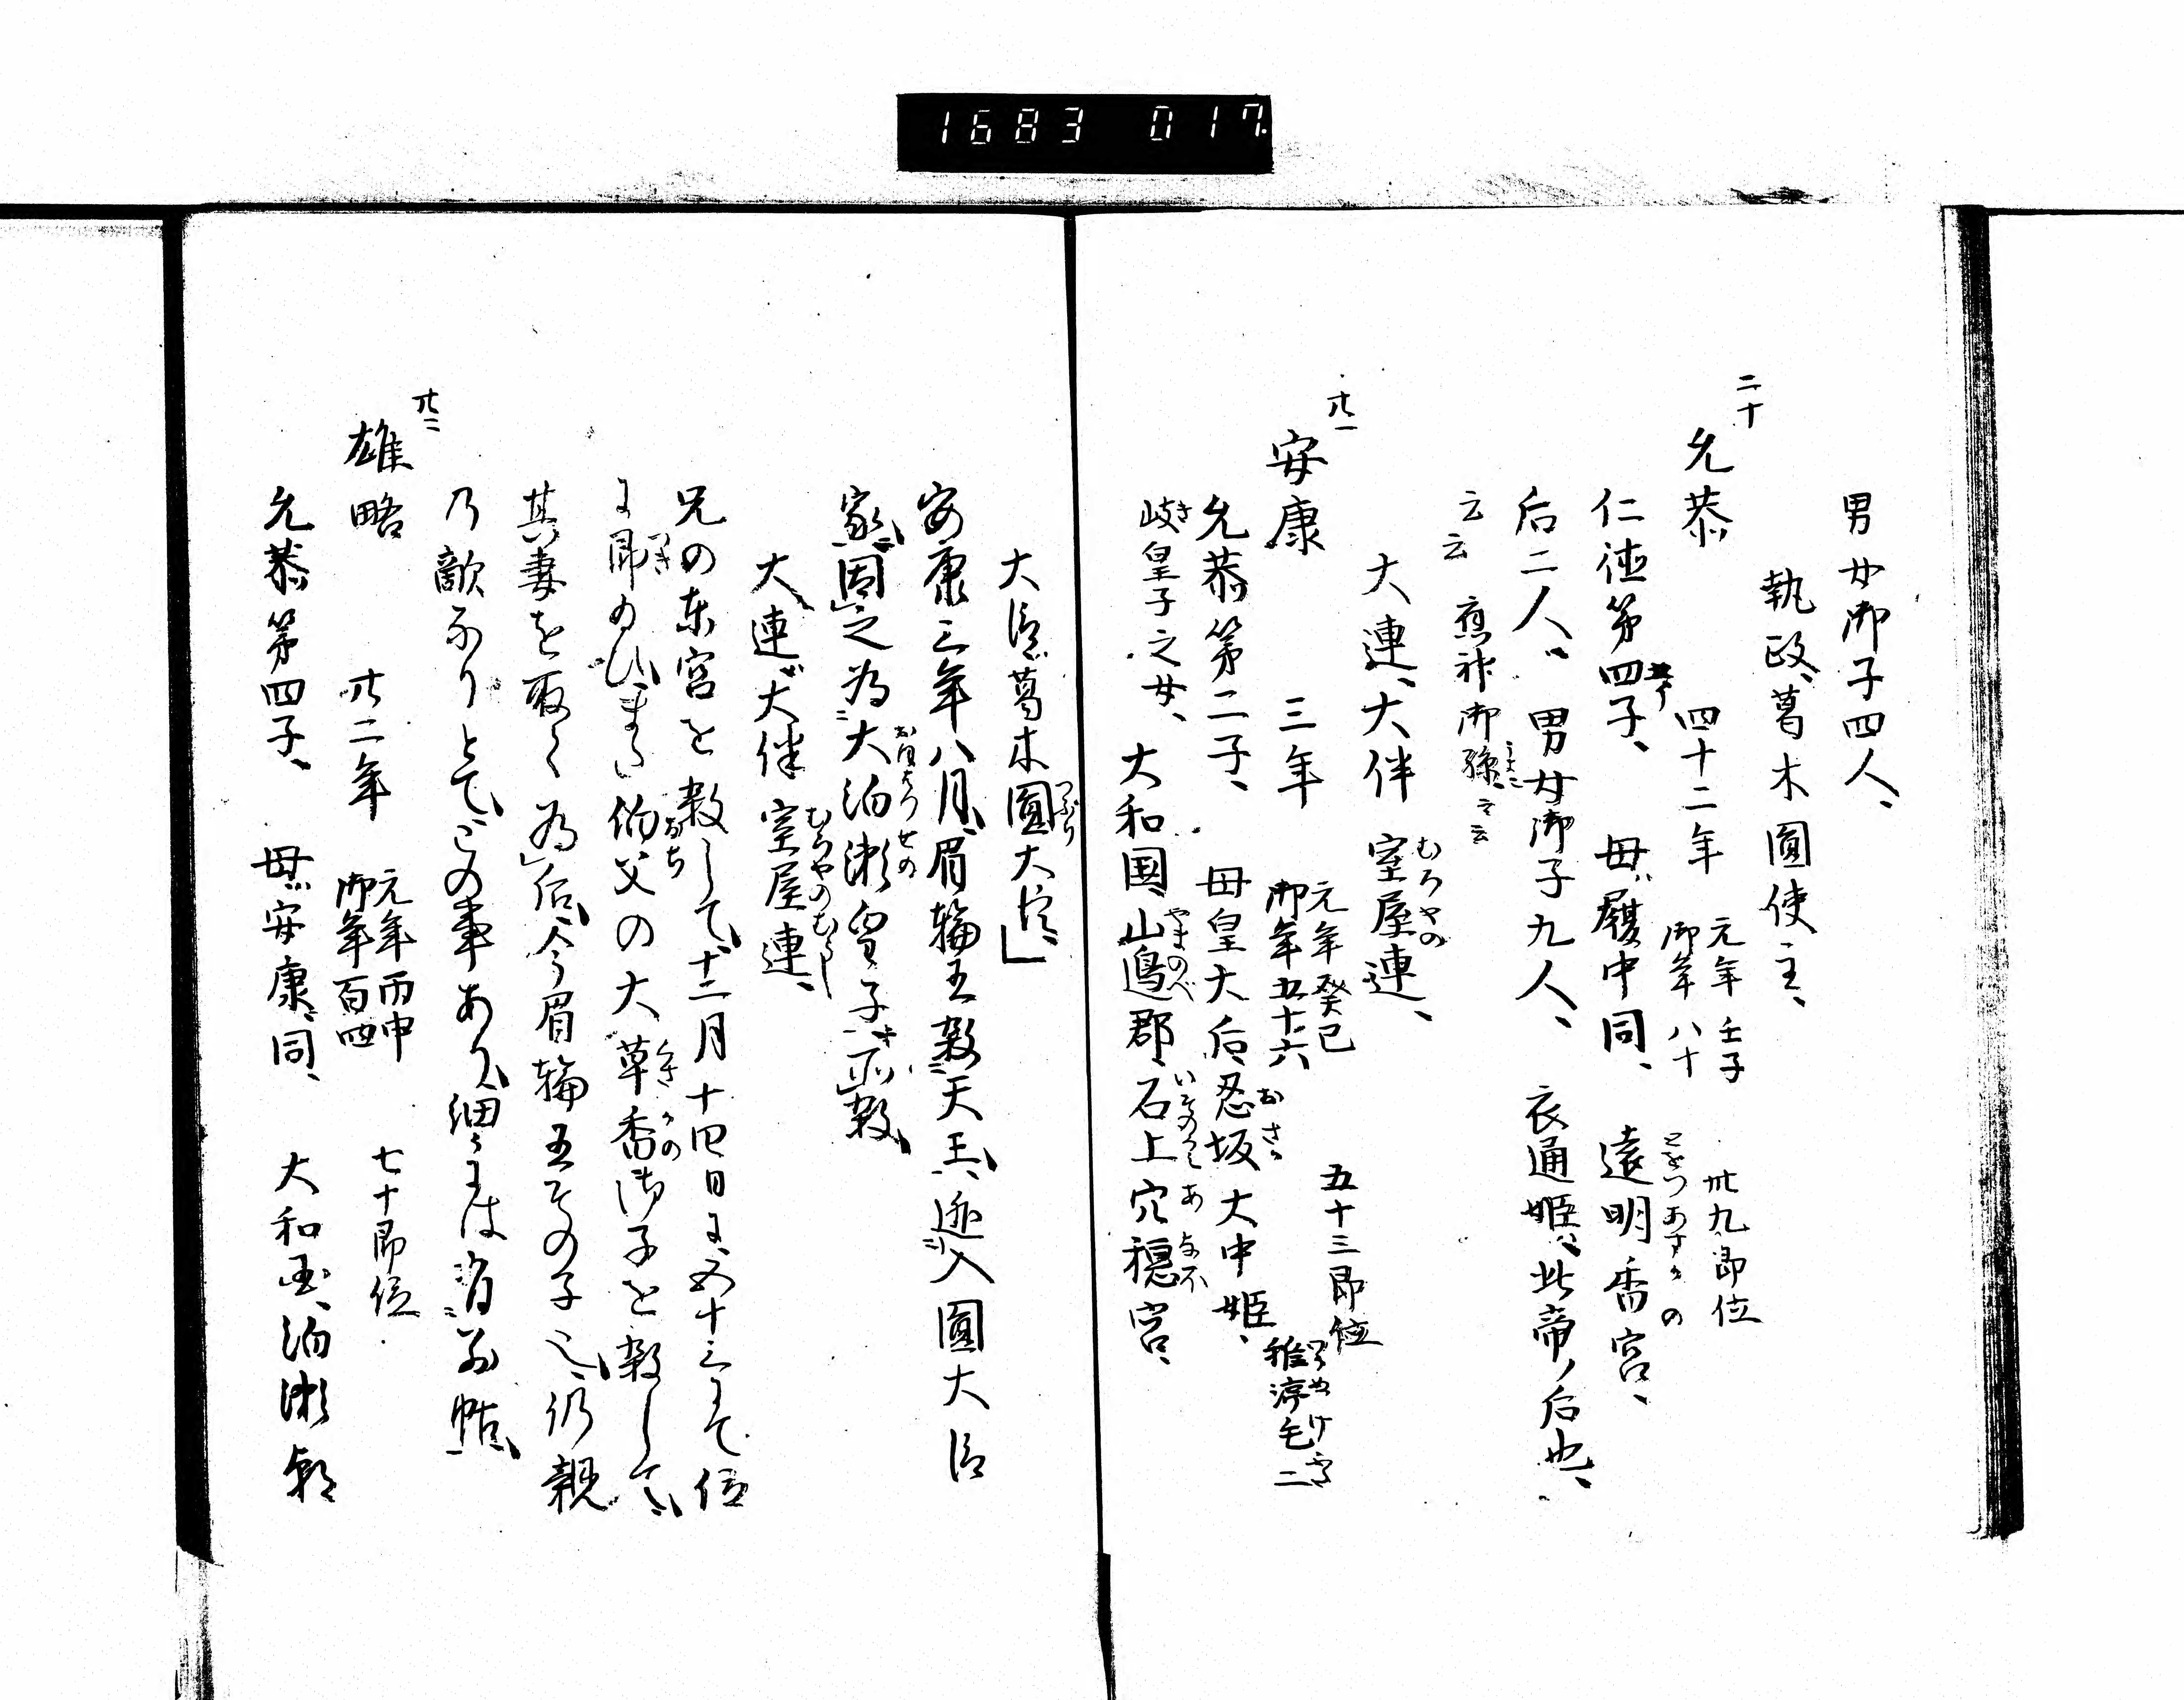 1683 017.
男女御子四人、
執政、葛木圓使主、
二十
允恭 四十二年 元年壬子 御年八十 卅九即位
仁徳第四子、 母ハ履中同、 遠明香宮、
とをつあすかの
后二人、 男女御子九人、 衣通姫、此帝ノ后也、
云云 應神御孫、云云
大連、大伴室屋連、
むろやの
廿一
安康 三年 元年癸巳 御年五十六 五十三即位
允恭第二子、 母皇大后、忍坂大中姫、
おさゝ
稚渟毛二
岐皇子之女、 大和国、山邊郡、石上穴穂宮、
き
やまのべ
大臣、葛木圓大臣、」
つぶら
安康三年八月、眉輪王殺天王、逃入圓大臣
家、因之為大泊瀬皇子、所殺、
おほはつせの
大連、大伴室屋連、
むろやのむらじ
兄の東宮を殺して、十二月十四日に、五十三にて位
に即ゐひ、
つき
伯父の大草香御子を殺して、
おぢ
くさかの
其妻を取て為后、今眉輪王その子也、仍親
乃敵なりとて、この事あり、細にはあり、
廿二
雄略 廿二年 元年丙申 御年百四 七十即位
允恭第四子、 母ハ安康同、 大和国、泊瀬朝